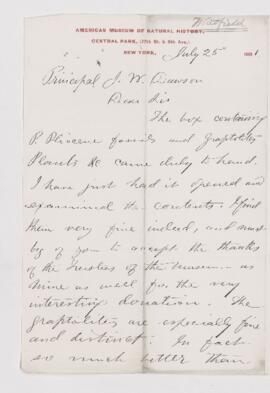 Whitfield
AMERICAN MUSEUM OF NATURAL HISTORY,
CENTRAL PARK, (77th St. & 8th Ave.)
NEW YORK, July 25th 1881.
Principal J. W. Dawson
Dear Sir
The box containing
P. Pliocene fossils and Graptolites
Plants &c came duly to hand.
I have just had it opened and
examined the contents. I find
them very fine indeed, and must
beg of you to accept the thanks
of the Trustees of the Museum as
mine as well for the very
interesting donation. The
graptolites are especially fine
and distinct. In fact
so much better than